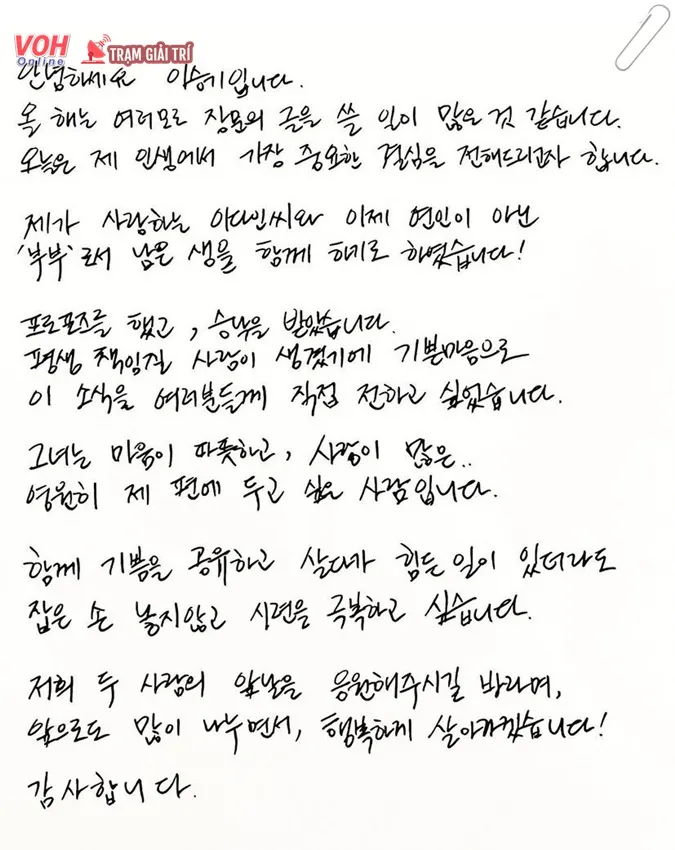 VOH
Online
TRẠM GIẢI TRÍ
안녕하세요 이승기입니다.
올 해는 여러모로 장문의 글을 쓸 일이 많은 것 같습니다.
오늘은 제 인생에서 가장 중요한 결심을 전해드리고자 합니다.
제가 사랑하는 이다인씨와 이제 연인이 아닌
'부부'로서 남은 생을 함께 하기로 하였습니다!
프로포즈를 했고, 승낙을 받았습니다.
평생 책임질 사람이 생겼기에 기쁜마음으로
이 소식을 여러분들께 직접 전하고 싶었습니다.
그녀는 마음이 따듯하고, 사랑이 많은..
영원히 제 편에 두고 싶은 사람입니다.
함께 기쁨을 공유하고 살다가 힘든 일이 있더라도
잡은 손 놓지않고 시련을 극복하고 싶습니다.
저희 두 사람의 앞날을 응원해주시길 바라며,
앞으로도 많이 나누면서, 행복하게 살아가겠습니다!
감사합니다.